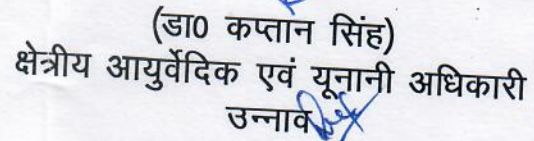 (डा0 कप्तान सिंह)
क्षेत्रीय आयुर्वेदिक एवं यूनानी अधिकारी
उन्नाव